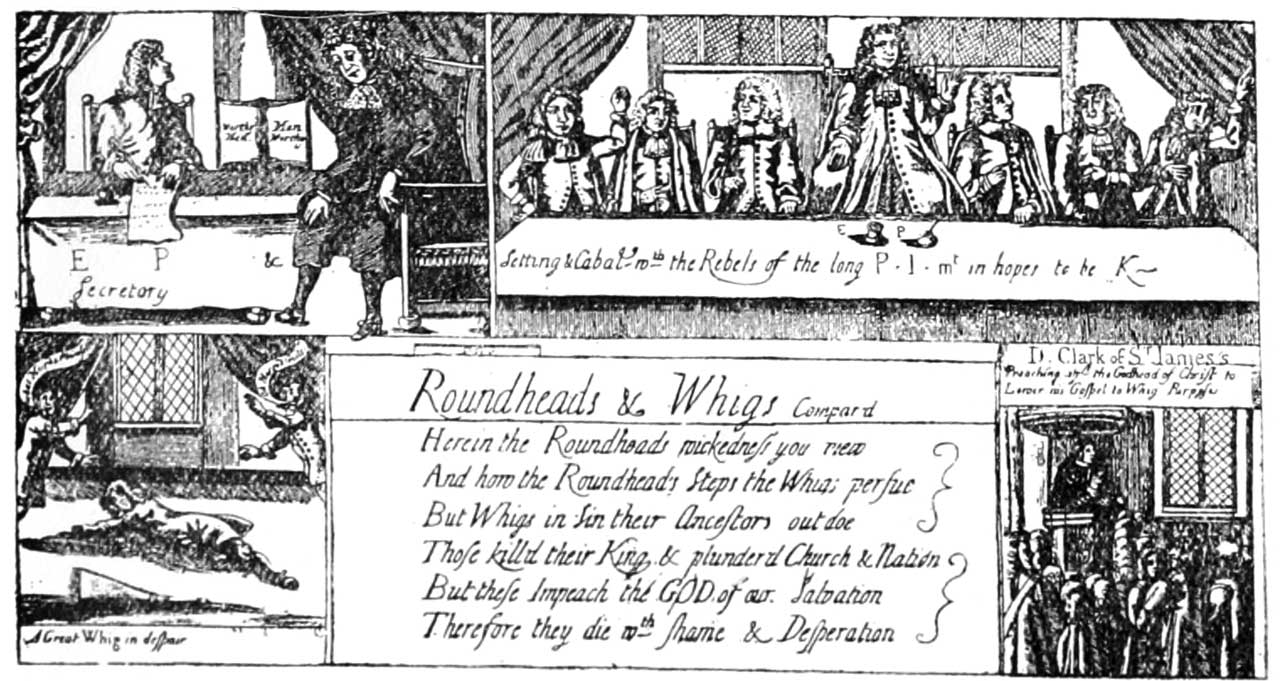 E P &c
Secretory
E P
Setting & Cabal wth the Rebels of the long P. I. mt in hopes to be K~
D. Clark of St. James's
Preaching the Godhead of Christ to
Gospel to Whig
Roundheads & Whigs Compar'd
Herein the Roundheads wickedneſs you view
And how the Roundheads Steps the Whigs perſue
But Whigs in Sin their Ancestors out doe
Thoſe kill'd their King & plunder'd Church & Nation
But theſe Impeach the GOD of our Salvation
Therefore they die wth ſhame & Deſperation
A Great Whig in deſpair